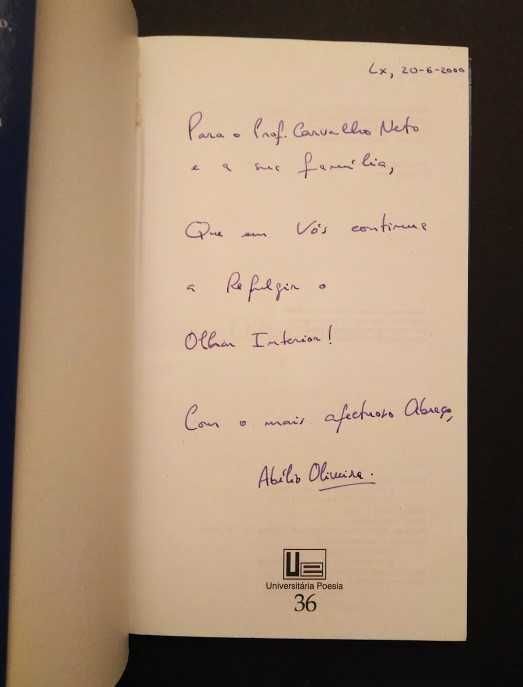 Lx, 20-6-2000
Para o Prof. Carvalho Neto
e a sua família,
Que em Vós continue
a Refulgir o
Olhar Interior!
Com o mais afectuoso Abraço,
Abílio Oliveira.
UE
Universitária Poesia
36